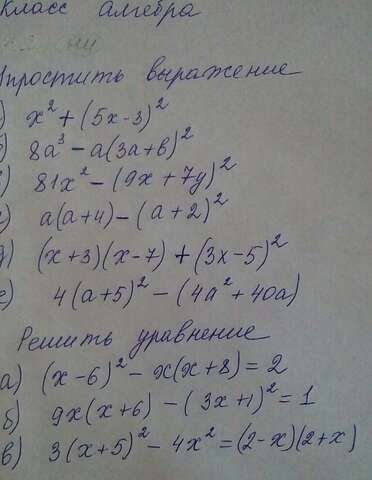 класс алгебра
Упростить выражение
) x² + (5x-3)²
б) 8a³ - a(3a+b)²
) 81x² - (9x + 7y)²
) a(a+4) - (a+2)²
д) (x+3)(x-7) + (3x-5)²
е) 4(a+5)² - (4a² + 40a)
Решить уравнение
а) (x-6)² - x(x+8) = 2
б) 9x(x+6) - (3x+1)² = 1
в) 3(x+5)² - 4x² = (2-x)(2+x)